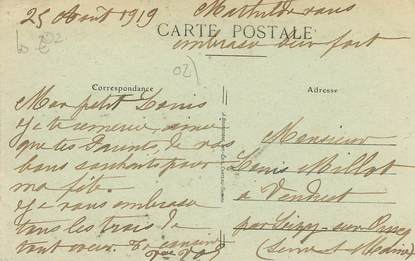 25 Août 1919 Mathilde vous
embrasse bien fort
CARTE POSTALE
Correspondance
Mon petit Louis
Je te remercie, ainsi
que tes Parents, de vos
bons souhaits pour
ma fête.
Je vous embrasse
tous les trois de
tout coeur.
Adresse
Monsieur
Louis Millot
à Vendrest
par Lizy-sur-Ourcq
(Seine & Marne)